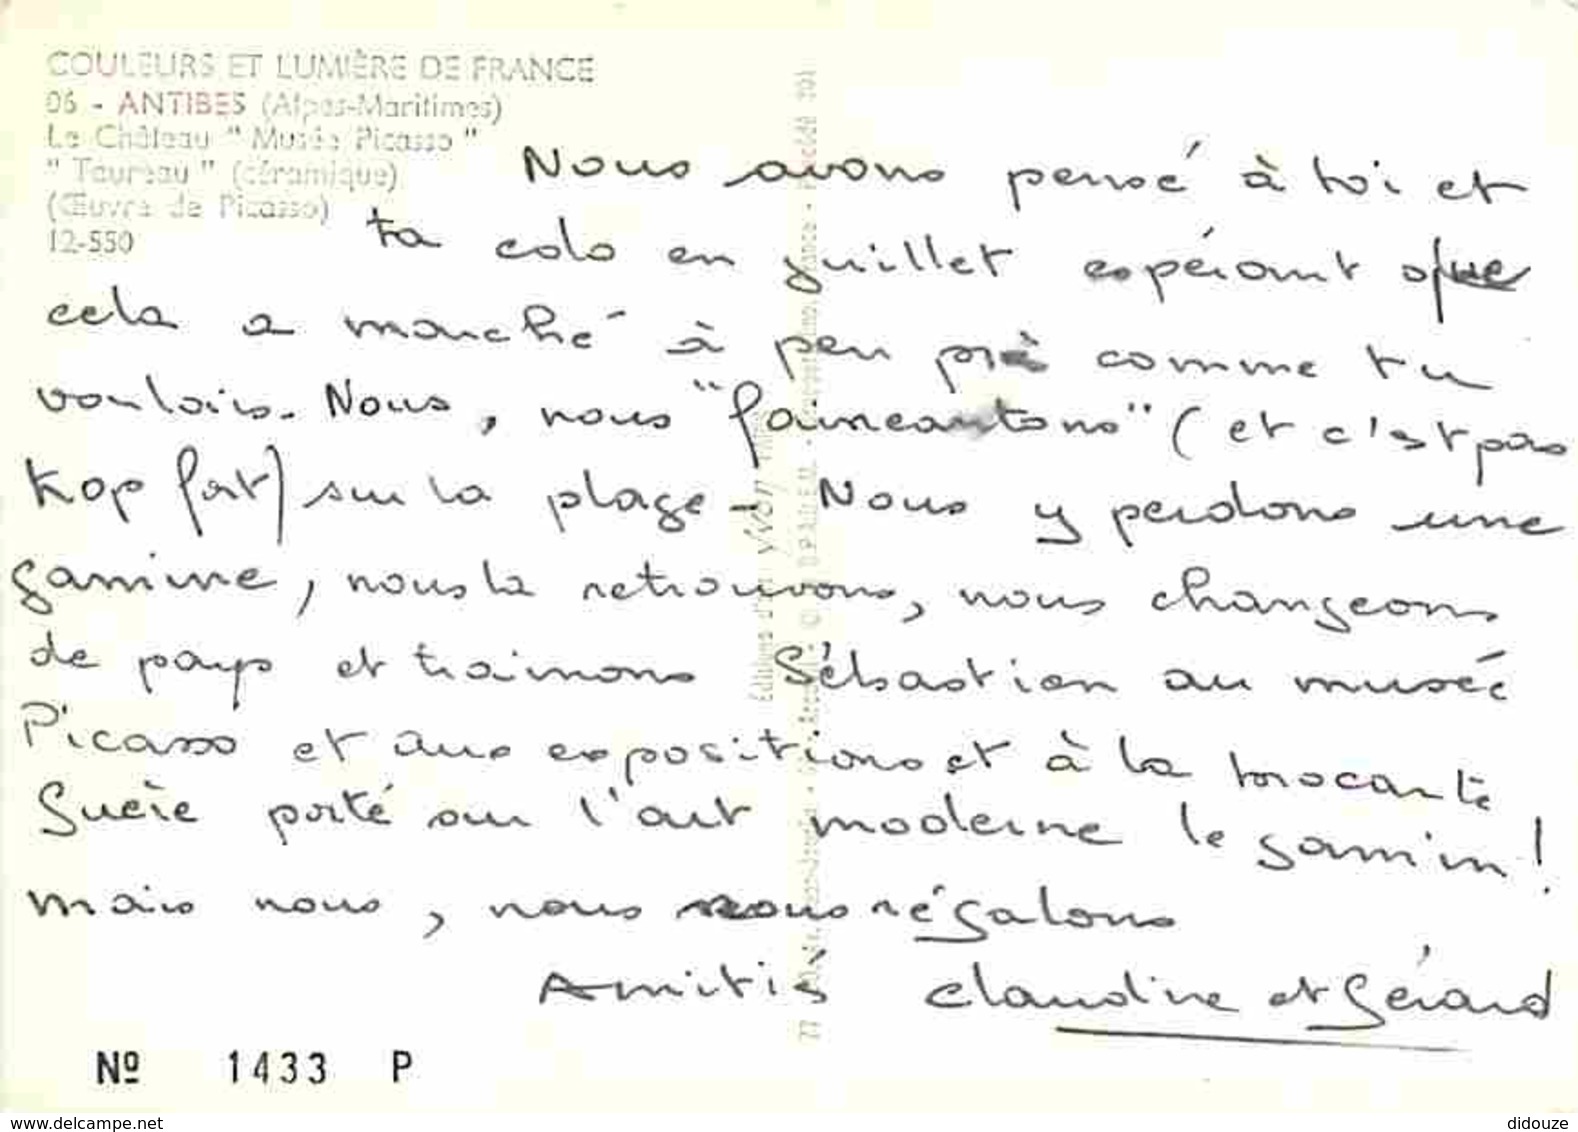 COULEURS ET LUMIÈRE DE FRANCE
06 - ANTIBES (Alpes-Maritimes)
Le Château " Musée Picasso "
" Taureau " (céramique)
(Œuvre de Picasso)
12-550
Nous avons pensé à toi et
ta colo en juillet espérant que
cela a marché à peu près comme tu
voulais. Nous, nous "faineantons" (et c'est pas
trop fort) sur la plage - Nous y perdons une
gamine, nous la retrouvons, nous changeons
de pays et trainons Sébastien au musée
Picasso et aux expositions et à la brocante
Guère porté sur l'art moderne le gamin !
mais nous, nous nous régalons
Amitiés Claudine et Gérard
Nº 1433 P
Editions d'art Yvon
delcampe.net
didouze